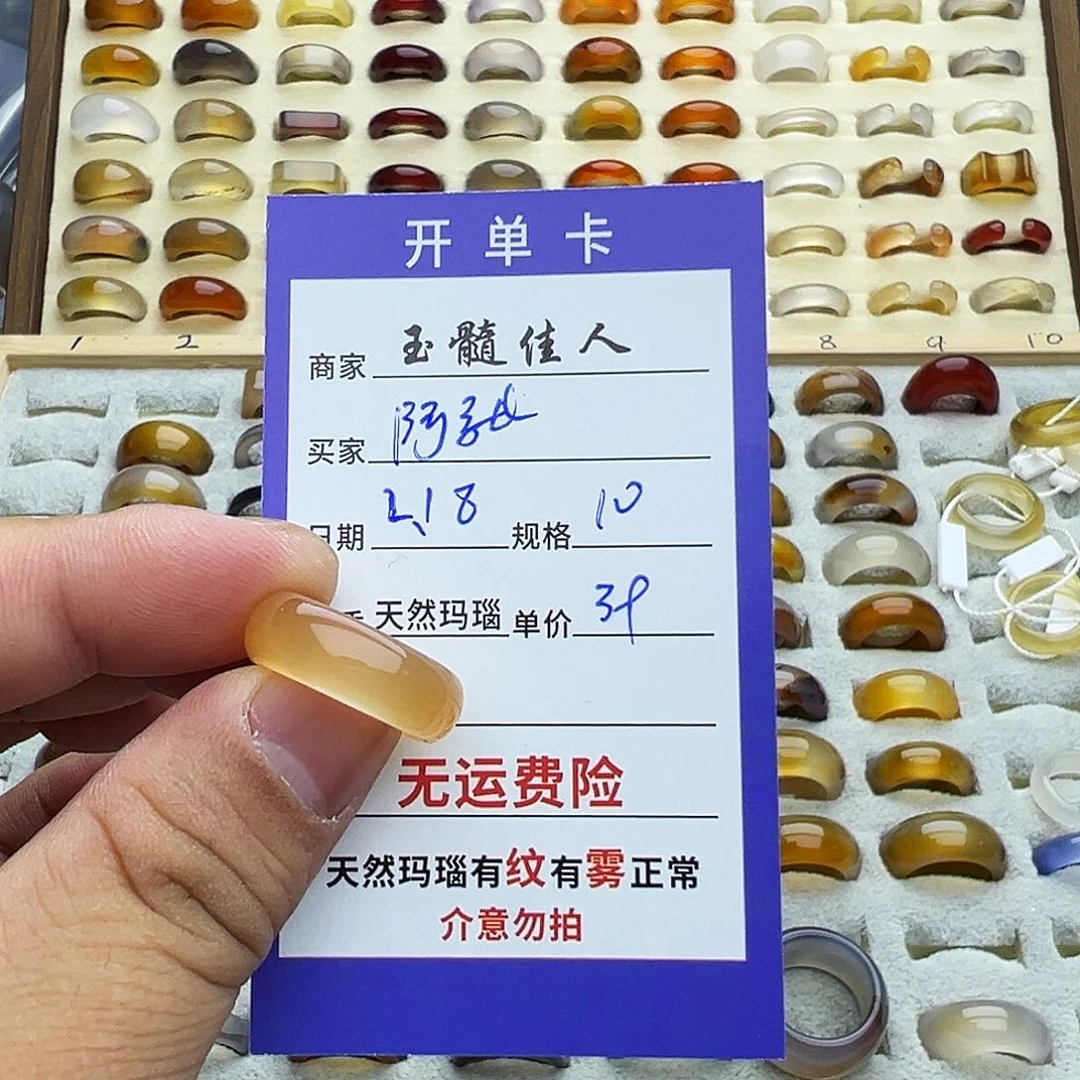 开单卡
商家 玉髓佳人
买家
日期 2.18 规格 10
天然玛瑙 单价
无运费险
天然玛瑙有纹有雾正常
介意勿拍
1 2 8 9 10